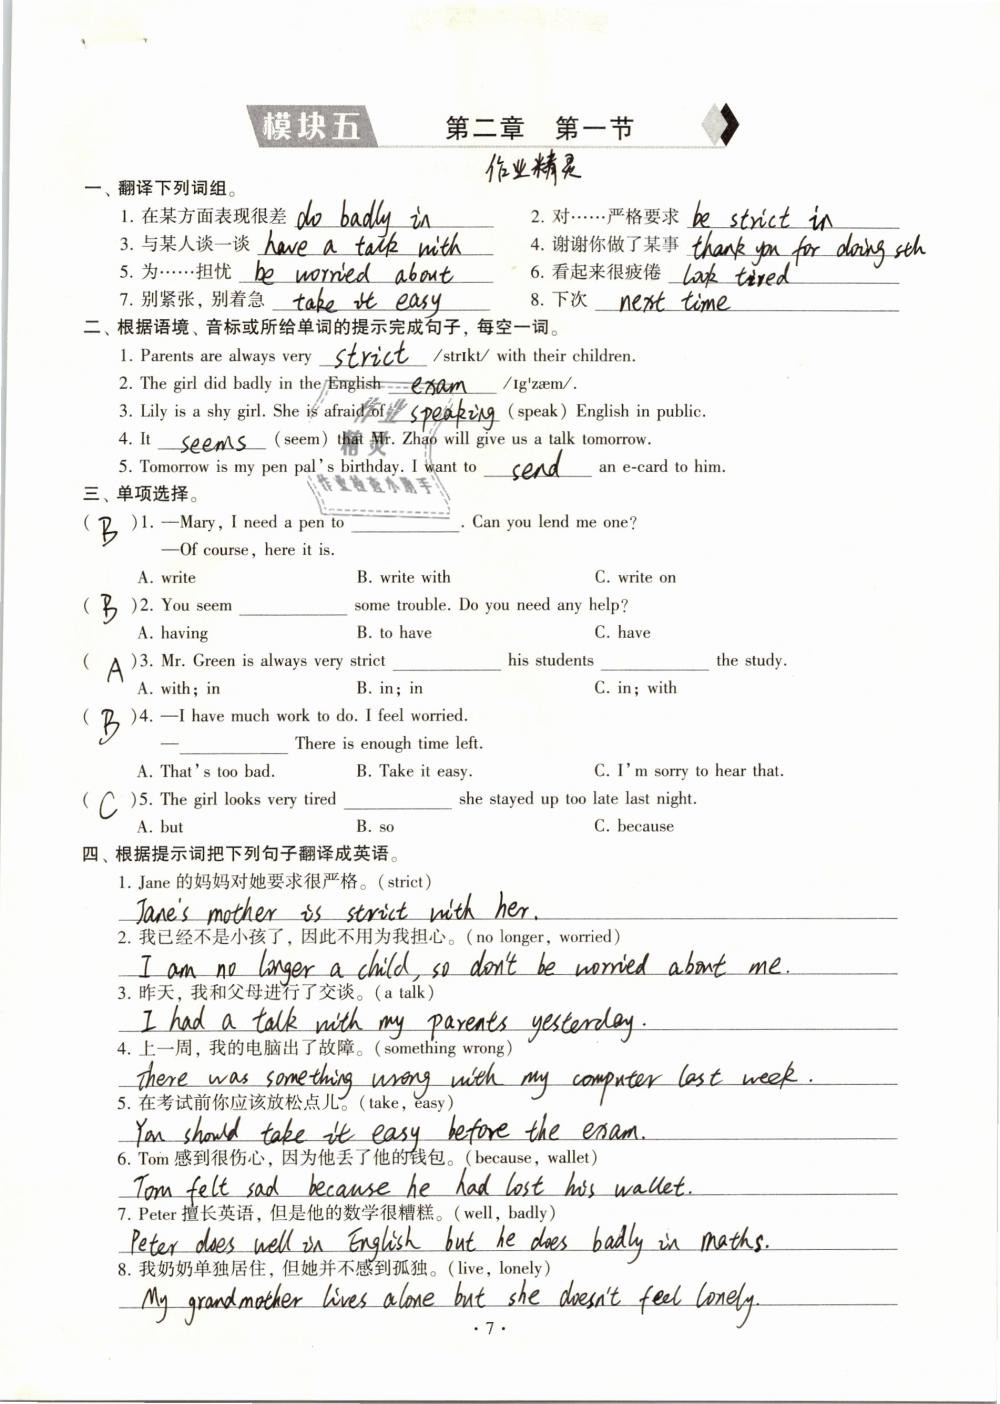 模块五 第二章 第一节
作业精灵
一、翻译下列词组。
1. 在某方面表现很差 do badly in 2. 对……严格要求 be strict in
3. 与某人谈一谈 have a talk with 4. 谢谢你做了某事 thank you for doing sth
5. 为……担忧 be worried about 6. 看起来很疲倦 look tired
7. 别紧张，别着急 take it easy 8. 下次 next time
二、根据语境、音标或所给单词的提示完成句子，每空一词。
1. Parents are always very strict /strɪkt/ with their children.
2. The girl did badly in the English exam /ɪgˈzæm/.
3. Lily is a shy girl. She is afraid of speaking (speak) English in public.
4. It seems (seem) that Mr. Zhao will give us a talk tomorrow.
5. Tomorrow is my pen pal's birthday. I want to send an e-card to him.
作业
精灵
作业检查小助手
三、单项选择。
( B )1. —Mary, I need a pen to ________. Can you lend me one?
—Of course, here it is.
A. write B. write with C. write on
( B )2. You seem ________ some trouble. Do you need any help?
A. having B. to have C. have
( A )3. Mr. Green is always very strict ________ his students ________ the study.
A. with; in B. in; in C. in; with
( B )4. —I have much work to do. I feel worried.
—________ There is enough time left.
A. That's too bad. B. Take it easy. C. I'm sorry to hear that.
( C )5. The girl looks very tired ________ she stayed up too late last night.
A. but B. so C. because
四、根据提示词把下列句子翻译成英语。
1. Jane 的妈妈对她要求很严格。(strict)
Jane's mother is strict with her.
2. 我已经不是小孩了，因此不用为我担心。(no longer, worried)
I am no longer a child, so don't be worried about me.
3. 昨天，我和父母进行了交谈。(a talk)
I had a talk with my parents yesterday.
4. 上一周，我的电脑出了故障。(something wrong)
there was something wrong with my computer last week.
5. 在考试前你应该放松点儿。(take, easy)
You should take it easy before the exam.
6. Tom 感到很伤心，因为他丢了他的钱包。(because, wallet)
Tom felt sad because he had lost his wallet.
7. Peter 擅长英语，但是他的数学很糟糕。(well, badly)
Peter does well in English but he does badly in maths.
8. 我奶奶单独居住，但她并不感到孤独。(live, lonely)
My grandmother lives alone but she doesn't feel lonely.
· 7 ·